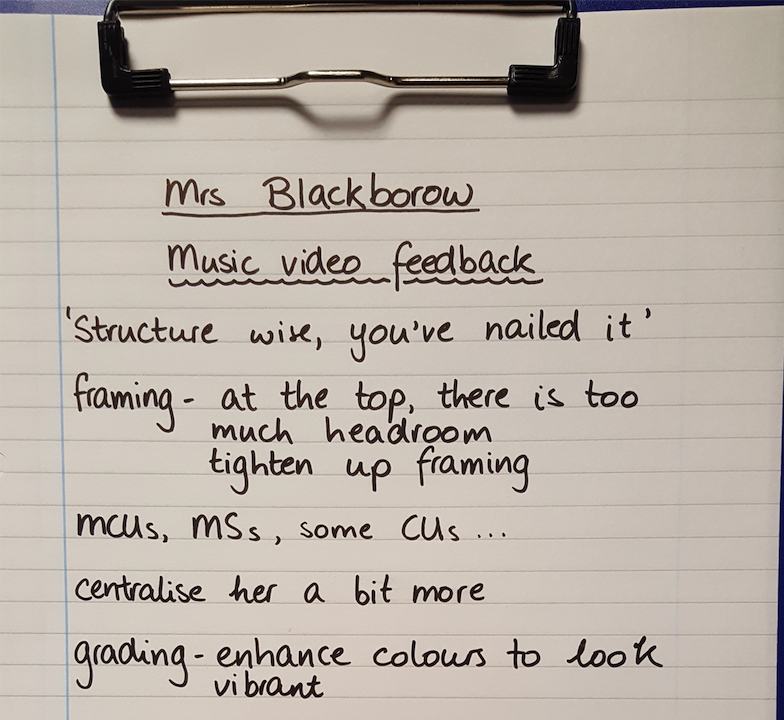 Mrs Blackborow
Music video feedback
'Structure wise, you've nailed it'
framing - at the top, there is too
much headroom
tighten up framing
MCUs, MSs, some CUs ...
centralise her a bit more
grading - enhance colours to look
vibrant